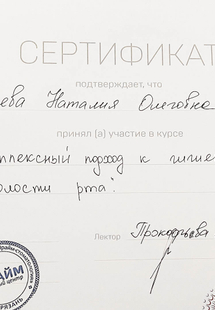 СЕРТИФИКАТ
подтверждает, что
ева Наталия Олеговна
принял (а) участие в курсе
плексный подход к гигие
олости рта".
Лектор Прокофьева
АЙМ
РЯЗАНЬ